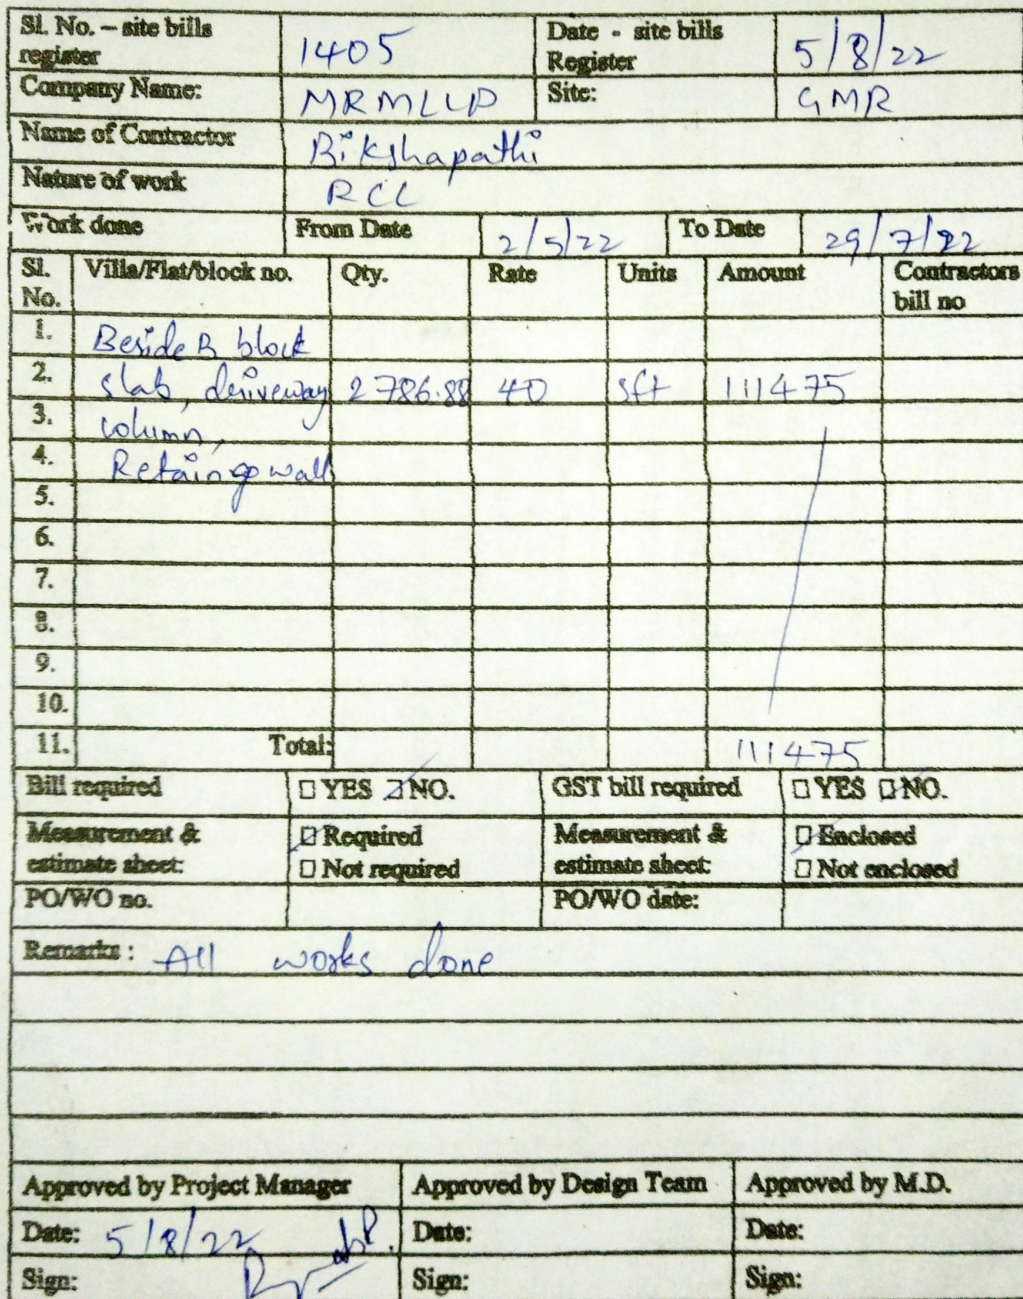 Sl. No. – site bills register 1405 Date - site bills Register 5/8/22
Company Name: MRMLLP Site: GMR
Name of Contractor Bikshapathi
Nature of work RCC
Work done From Date 2/5/22 To Date 29/7/22
Sl. No. Villa/Flat/block no. Qty. Rate Units Amount Contractors bill no
1. Beside B block
2. slab, driveway 2786.88 40 sft 111475
3. column,
4. Retaing wall
5.
6.
7.
8.
9.
10.
11. Total: 111475
Bill required ☐ YES ☑ NO. GST bill required ☐ YES ☑ NO.
Measurement & estimate sheet: ☑ Required ☐ Not required Measurement & estimate sheet: ☑ Enclosed ☐ Not enclosed
PO/WO no. PO/WO date:
Remarks : All works done
Approved by Project Manager Approved by Design Team Approved by M.D.
Date: 5/8/22 Date: Date:
Sign: Sign: Sign: